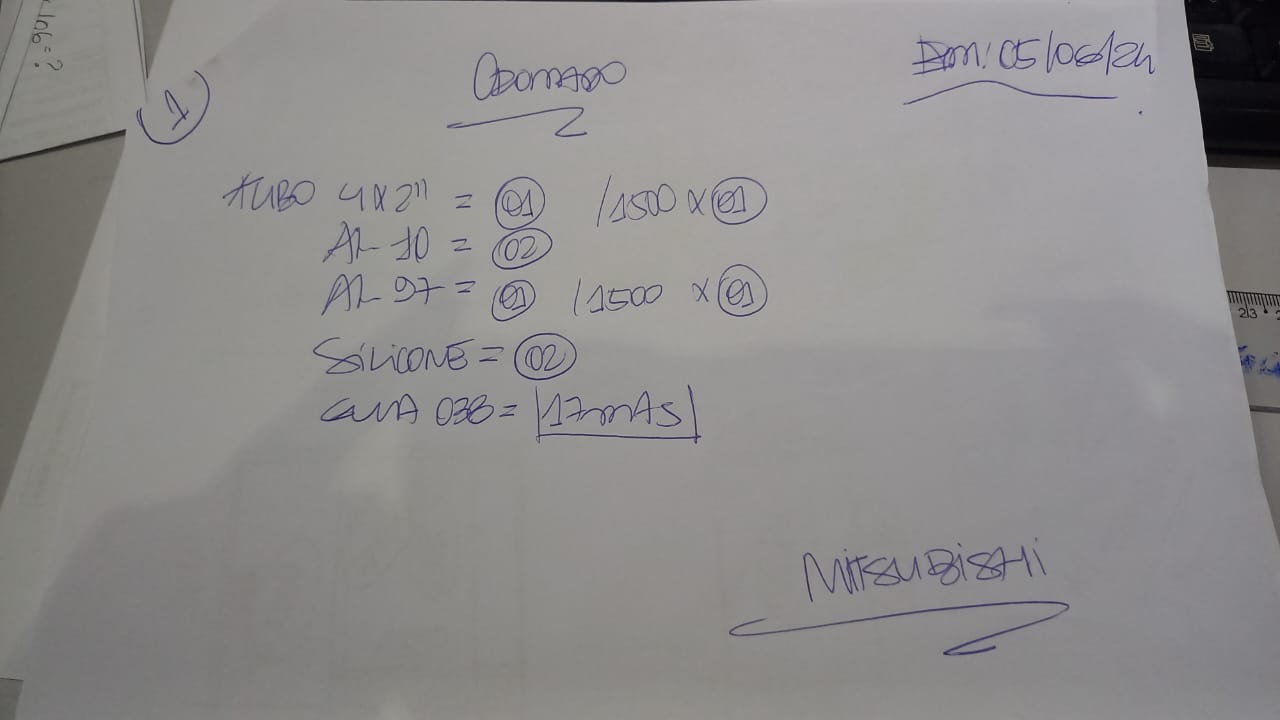 106 = ?
1
Em: 05/06/24
TUBO 4x2" = 01 /1500 x 01
AL 10 = 02
AL 97 = 01 /1500 x 01
SiLiCONE = 02
038 = 17mts
MiTSUBiSHi
23